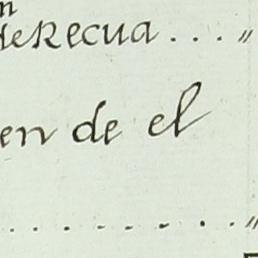 derecua . . . "
en de el
. . . . . . . . . "